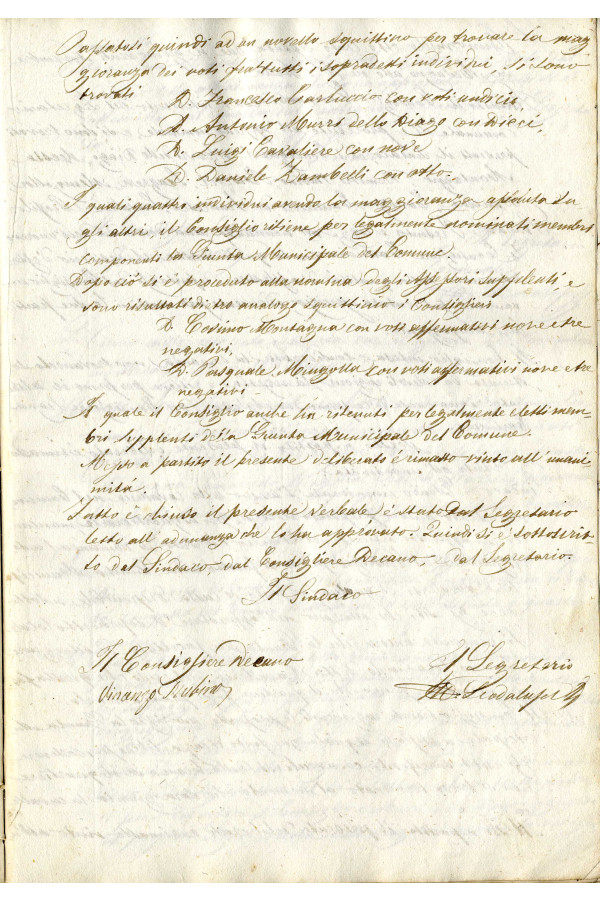 Passatosi quindi ad un novello squittino per trovare la mag
gioranza dei voti fra tutti i sopradetti individui, si sono
trovati
D. Francesco Carluccio con voti undici,
D. Antonio Murri dello Diago con Dieci,
D. Luigi Cavaliere con nove
D. Daniele Zambelli con otto.
I quali quattro individui avendo la maggioranza assoluta su
gli altri, il Consiglio ritiene per legalmente nominati membri
componenti la Giunta Municipale del Comune.
Dopo ciò si è proceduto alla nomina degli Assessori supplenti, e
sono risultati dietro analogo squittinio i Consiglieri
D. Cosimo Montagna con voti affermativi nove e tre
negativi,
D. Pasquale Mingolla con voti affermativi nove e tre
negativi.
I quale il Consiglio anche ha ritenuti per legalmente eletti mem
bri supplenti della Giunta Municipale del Comune.
Messo a partito il presente deliberato è rimasto vinto all'unani
mità.
Fatto e chiuso il presente verbale è stato dal Segretario
letto all'adunanza che lo ha approvato. Quindi si è sottoscrit
to dal Sindaco, dal Consigliere Decano, e dal Segretario.
Il Sindaco
Il Consigliere Decano
Il Segretario
Vincenzo Rubino